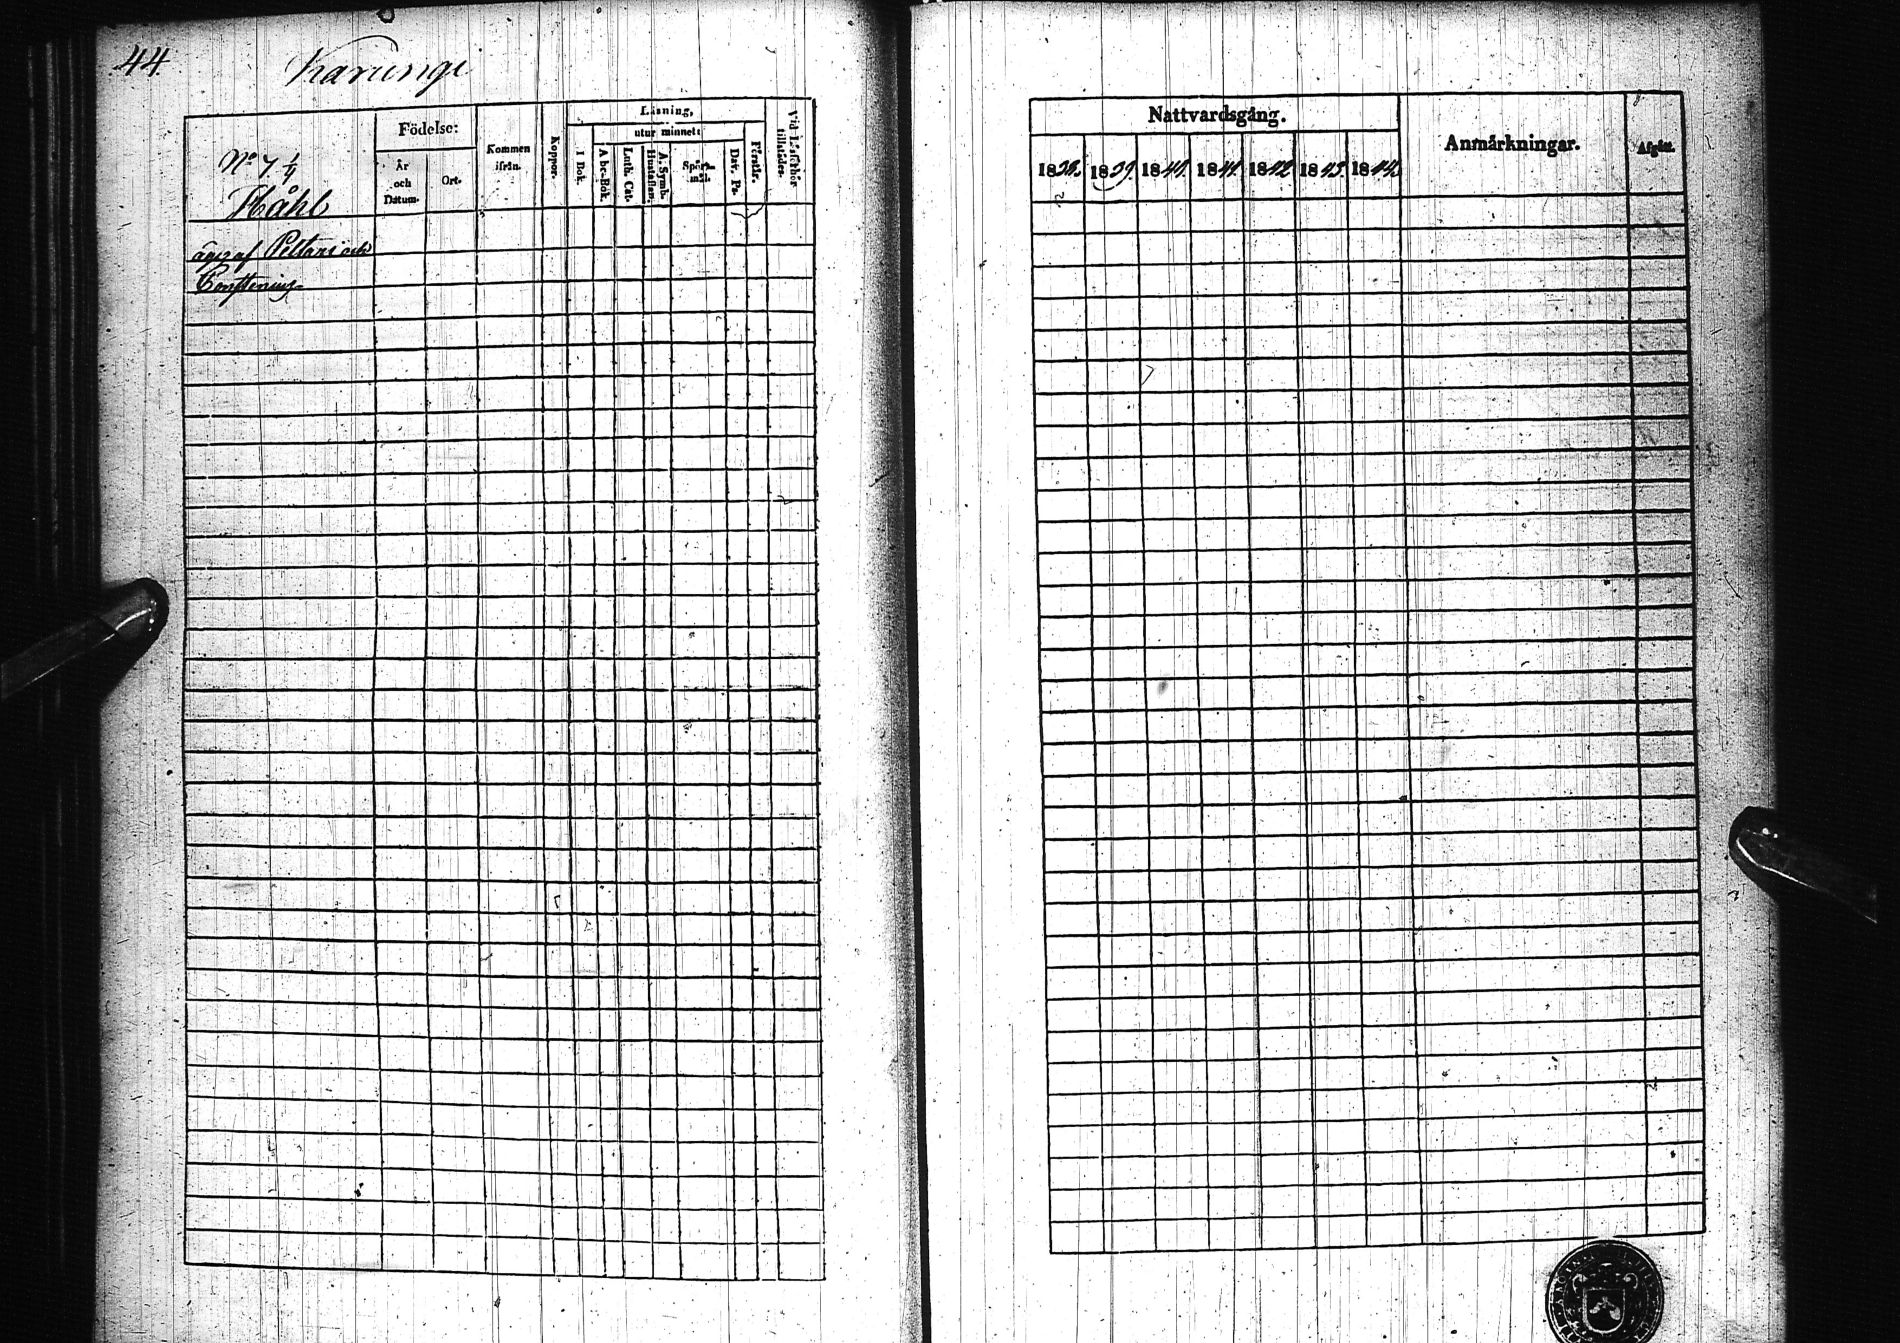 44.
Karungi
No 7 1/4
Håhl
äges af Peltoni och
Födelse:
År
och
Datum.
Ort.
Kommen
ifrån.
Koppor.
Läsning,
utur minnet:
I Bok.
A b c-Bok.
Luth. Cat.
A. Symb.
Hustaflan.
Spörsmål.
Dav. Ps.
Förstår.
Vid Läsförhör
tillstädes.
Nattvardsgång.
1838. 1839. 1840. 1841. 1842 1843. 1844.
Anmärkningar.
Afgått.